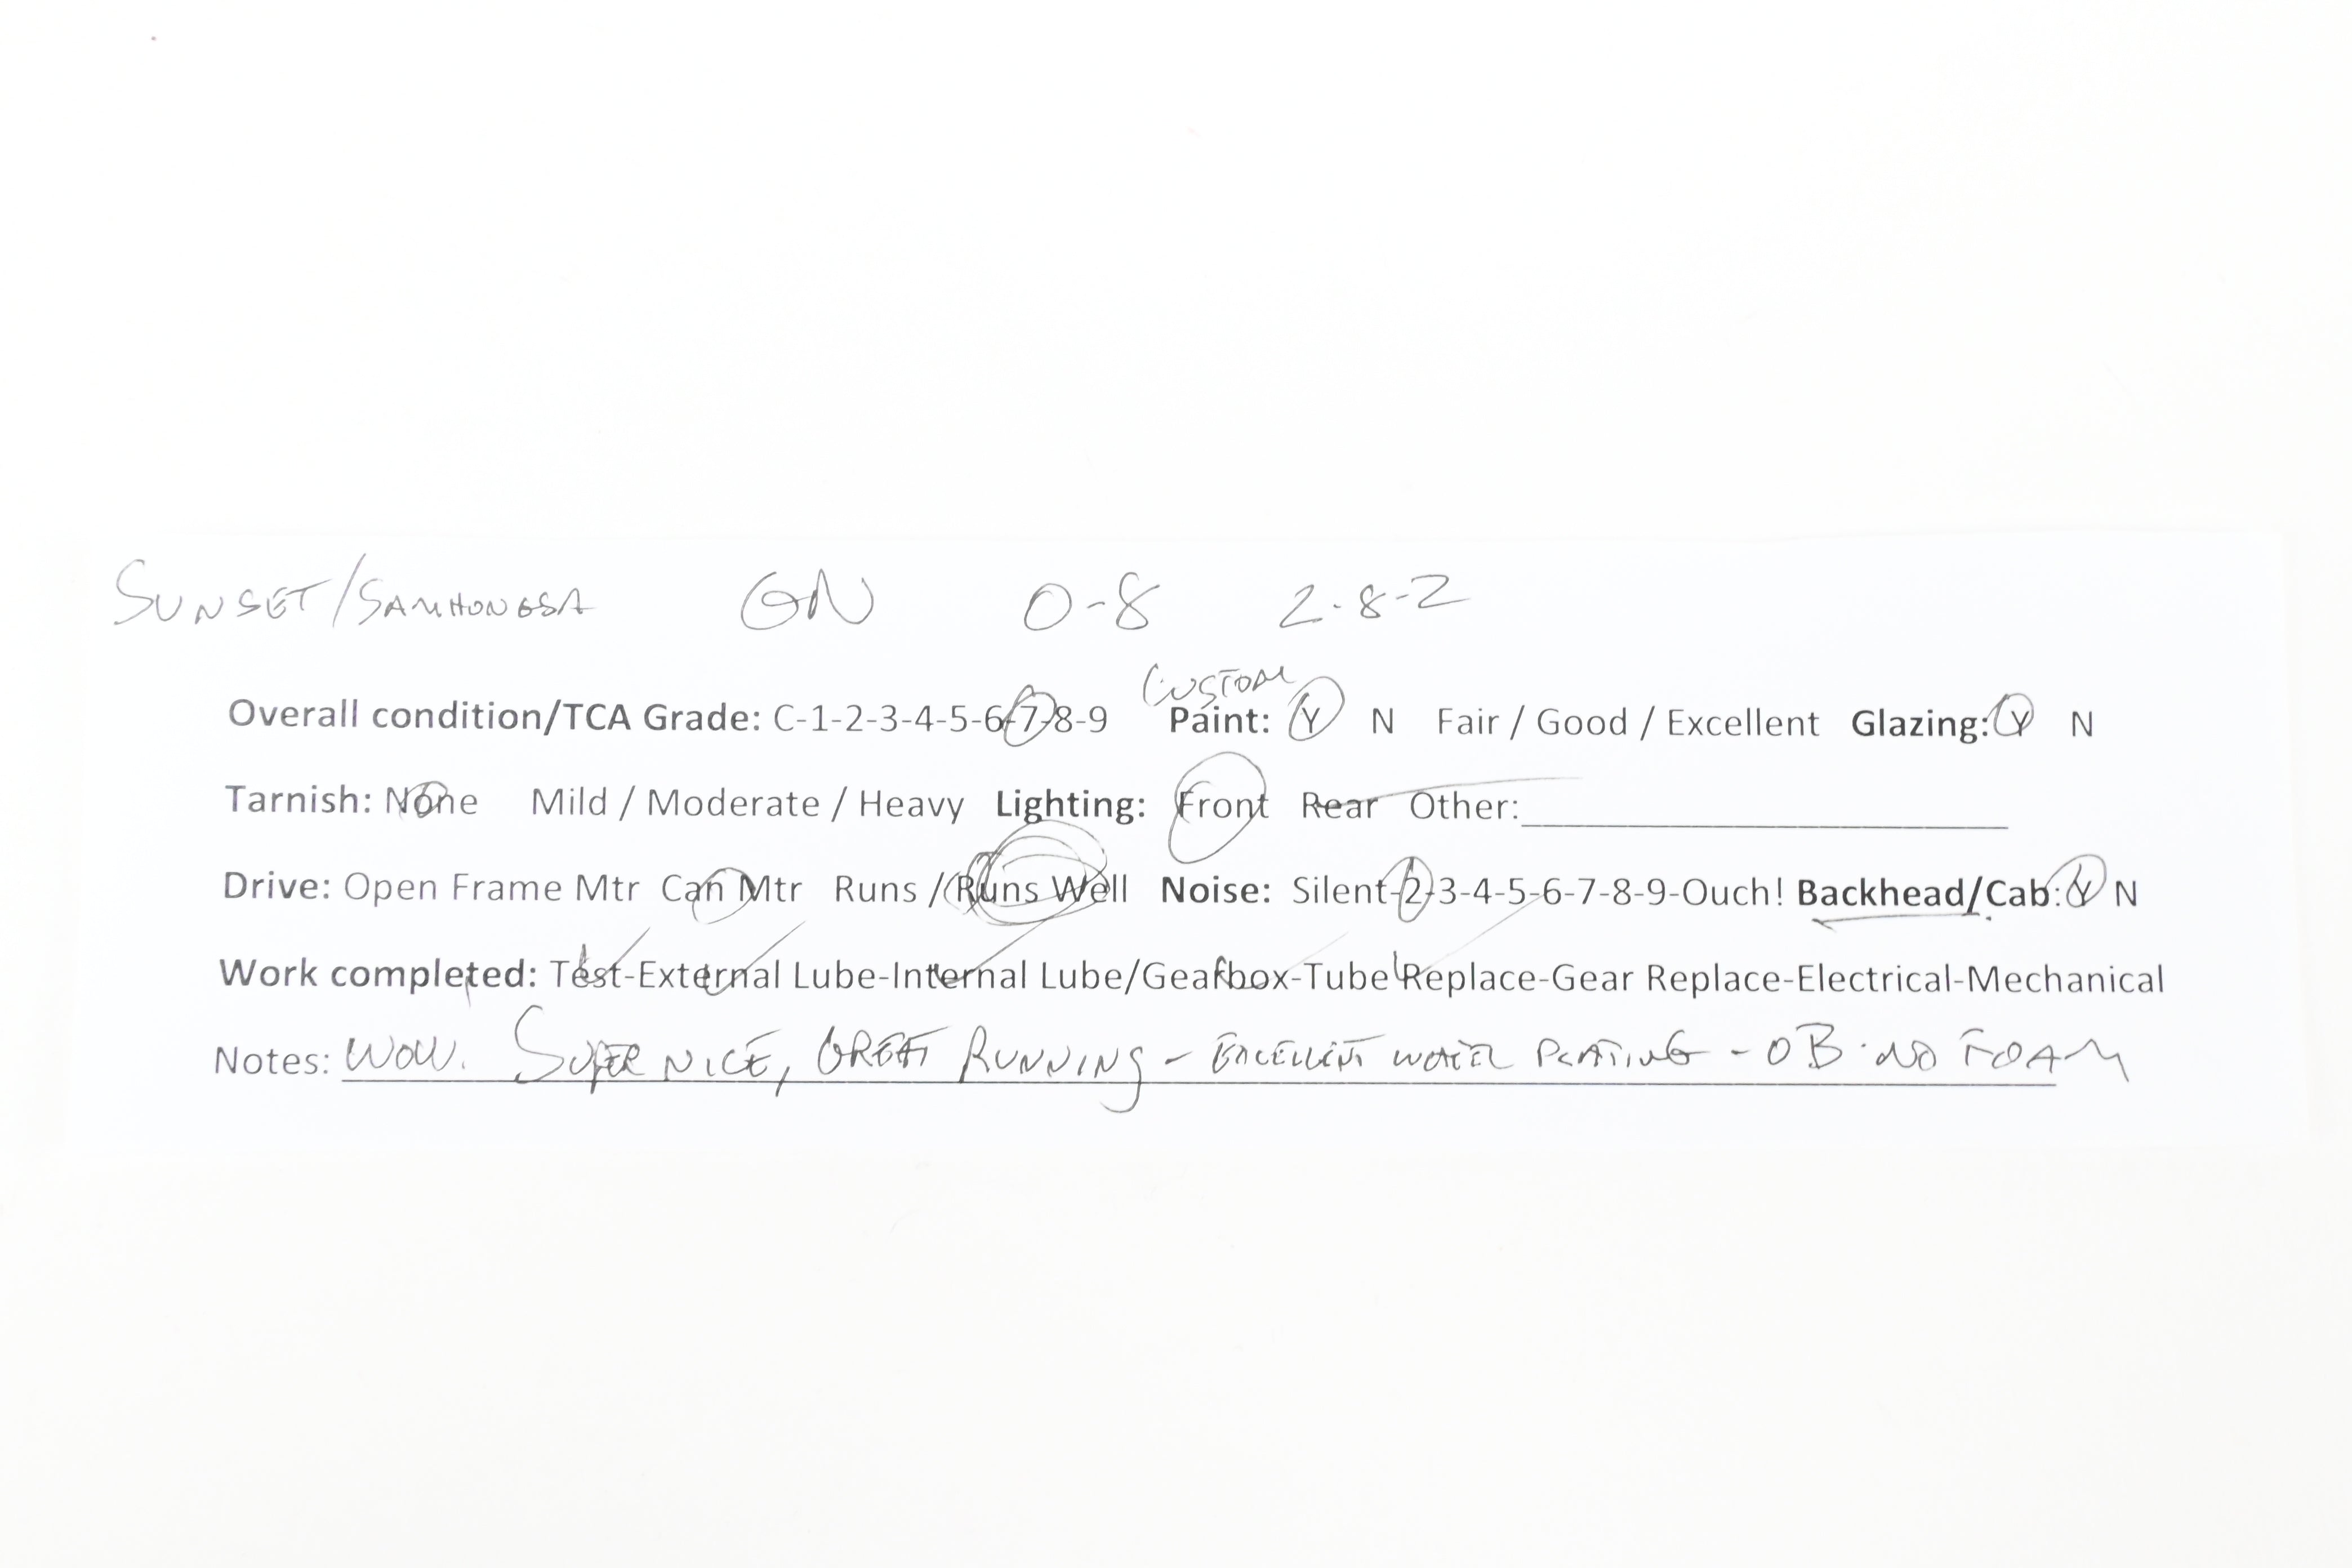 SUNSET/SAMHONGSA GN O-8 2-8-2
CUSTOM
Overall condition/TCA Grade: C-1-2-3-4-5-6-7-8-9 Paint: Y N Fair / Good / Excellent Glazing: Y N
Tarnish: None Mild / Moderate / Heavy Lighting: Front Rear Other:
Drive: Open Frame Mtr Can Mtr Runs / Runs Well Noise: Silent-2-3-4-5-6-7-8-9-Ouch! Backhead/Cab: Y N
Work completed: Test-External Lube-Internal Lube/Gearbox-Tube Replace-Gear Replace-Electrical-Mechanical
Notes: WOW. SUPER NICE, GREAT RUNNING - EXCELLENT PLATING - OB. NO FOAM